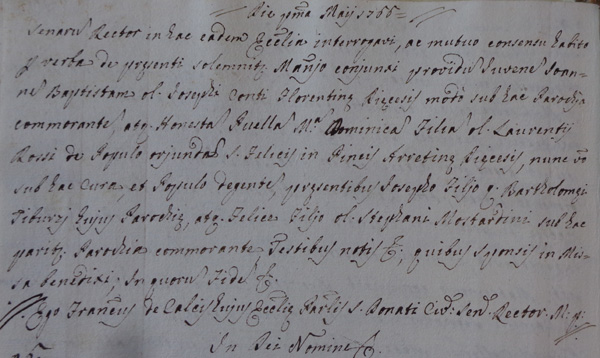 Die pma Maij 1766
Senarus Rector in hac eadem Ecclia interrogavi, ac mutuo consensu habito
p verba de przsenti solemnitz Mrijo conjunxi providu Juvene Joan-
ne Baptistam ol. Josephi Conti Florentinz Dizcesis modo sub hac Parochia
commorante, atq. Honesta Puella Ma Dominica Filia ol. Laurentij
Rossi de Populo orjunda S. Felicis in Pincis Arretinz Dizcesis, nunc vo
sub hac Cura, et Populo degente, przsentibus Josepho Filjo q. Bartholomzi
Tiburzj hujus Parochiz, atq. Felice Filjo ol. Stephani Mostardini sub hac
paritz Parochia commorante Testibus notis &, quibus sponsis in Mis-
sa benedixi; In quoru Fide &.
Ego Francus de Calcis hujus Eccliz Parlis S. Donati Rector. M. p.
In Dei Nomine &.